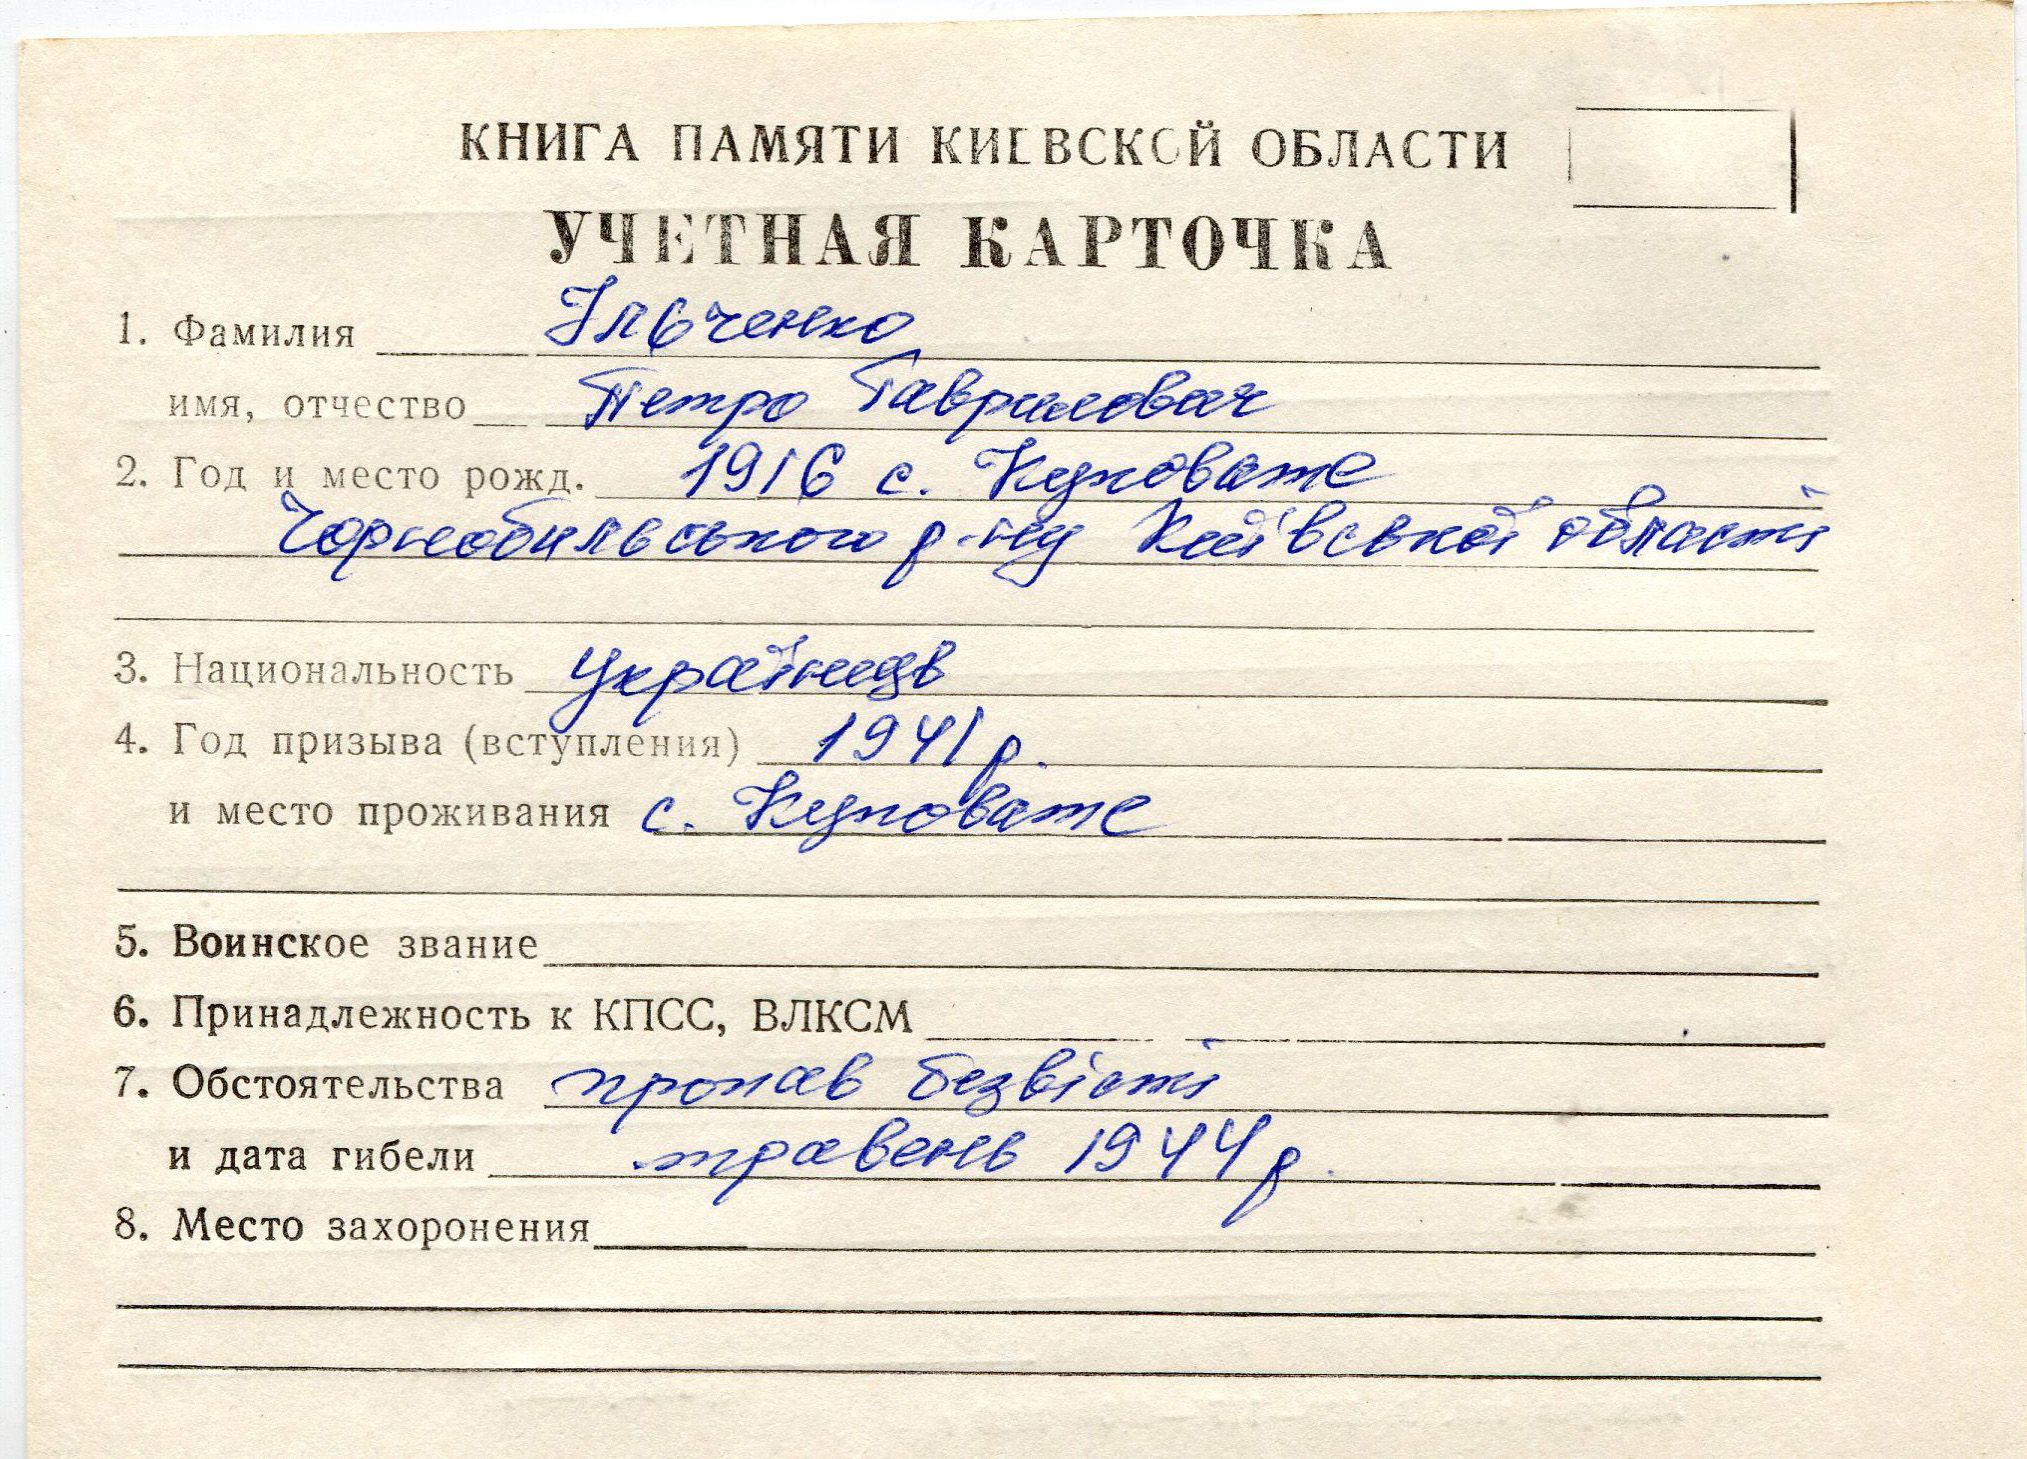 КНИГА ПАМЯТИ КИЕВСКОЙ ОБЛАСТИ
УЧЕТНАЯ КАРТОЧКА
1. Фамилия Ільченко
имя, отчество Петро Гаврилович
2. Год и место рожд. 1916 с. Куповате
Чорнобильського р-ну Київської області
3. Национальность українець
4. Год призыва (вступления) 1941 р.
и место проживания с. Куповате
5. Воинское звание
6. Принадлежность к КПСС, ВЛКСМ
7. Обстоятельства пропав безвісті
и дата гибели травень 1944 р.
8. Место захоронения